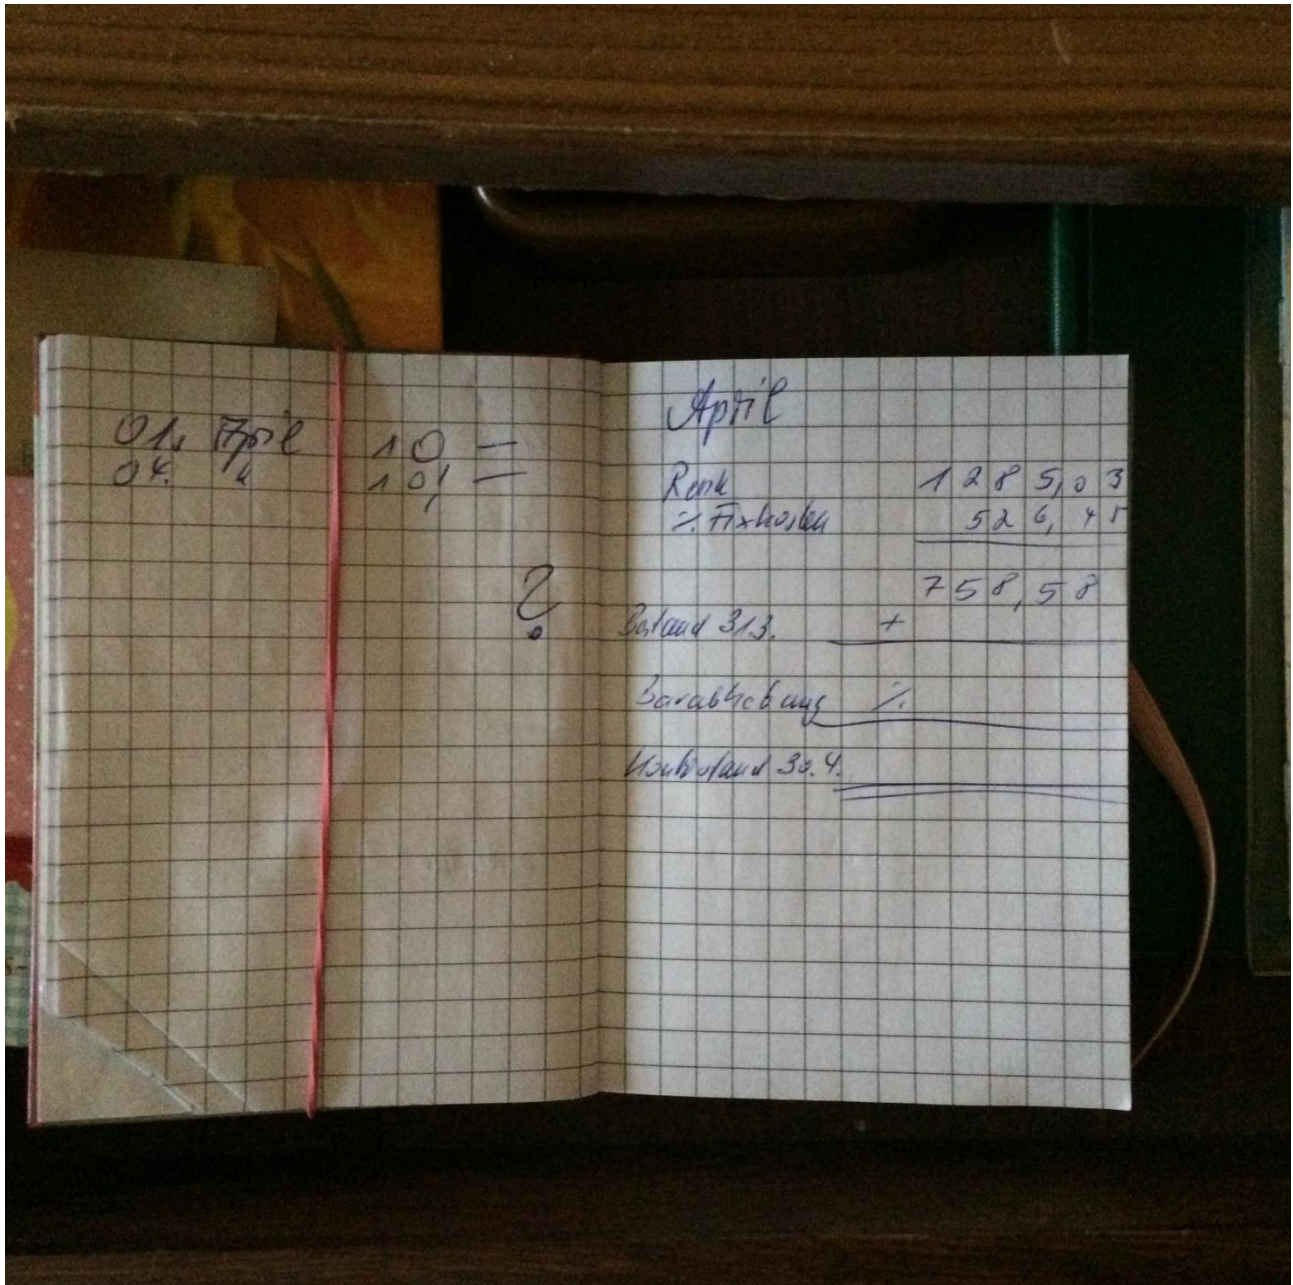 01. April 10 =
04. " 10, =
?
April
Rente 1285,03
./. Fixkosten 526,45
758,58
Bestand 31.3. +
Barabhebung ./.
Kontostand 30.4.